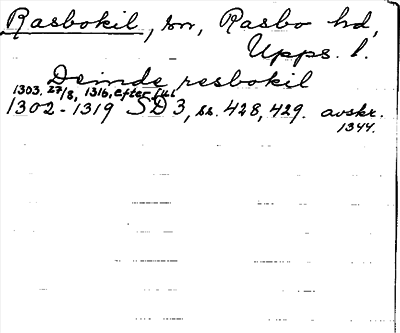 Rasbokil, sn, Rasbo hd,
Upps. l.
Deinde resbokil
1303. 27/8, 1316, efter juli
1302-1319 SD 3, ss. 428, 429. avskr.
1344.